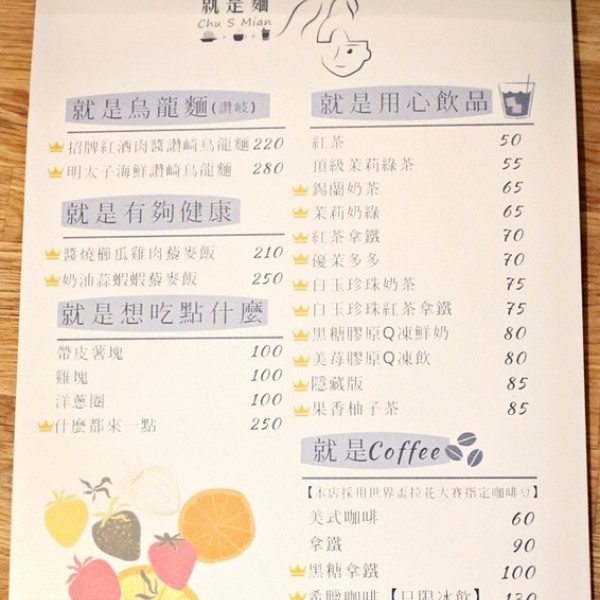 就是麵
Chu S Mian
就是烏龍麵(讚岐)
招牌紅酒肉醬讚崎烏龍麵 220
明太子海鮮讚崎烏龍麵 280
就是有夠健康
醬燒櫛瓜雞肉藜麥飯 210
奶油蒜蝦蝦藜麥飯 250
就是想吃點什麼
帶皮薯塊 100
雞塊 100
洋蔥圈 100
什麼都來一點 250
就是用心飲品
紅茶 50
頂級茉莉綠茶 55
錫蘭奶茶 65
茉莉奶綠 65
紅茶拿鐵 70
優茉多多 70
白玉珍珠奶茶 75
白玉珍珠紅茶拿鐵 75
黑糖膠原Q凍鮮奶 80
美莓膠原Q凍飲 80
隱藏版 85
果香柚子茶 85
就是Coffee
【本店採用世界盃拉花大賽指定咖啡豆】
美式咖啡 60
拿鐵 90
黑糖拿鐵 100
希臘咖啡【只限冰飲】 130